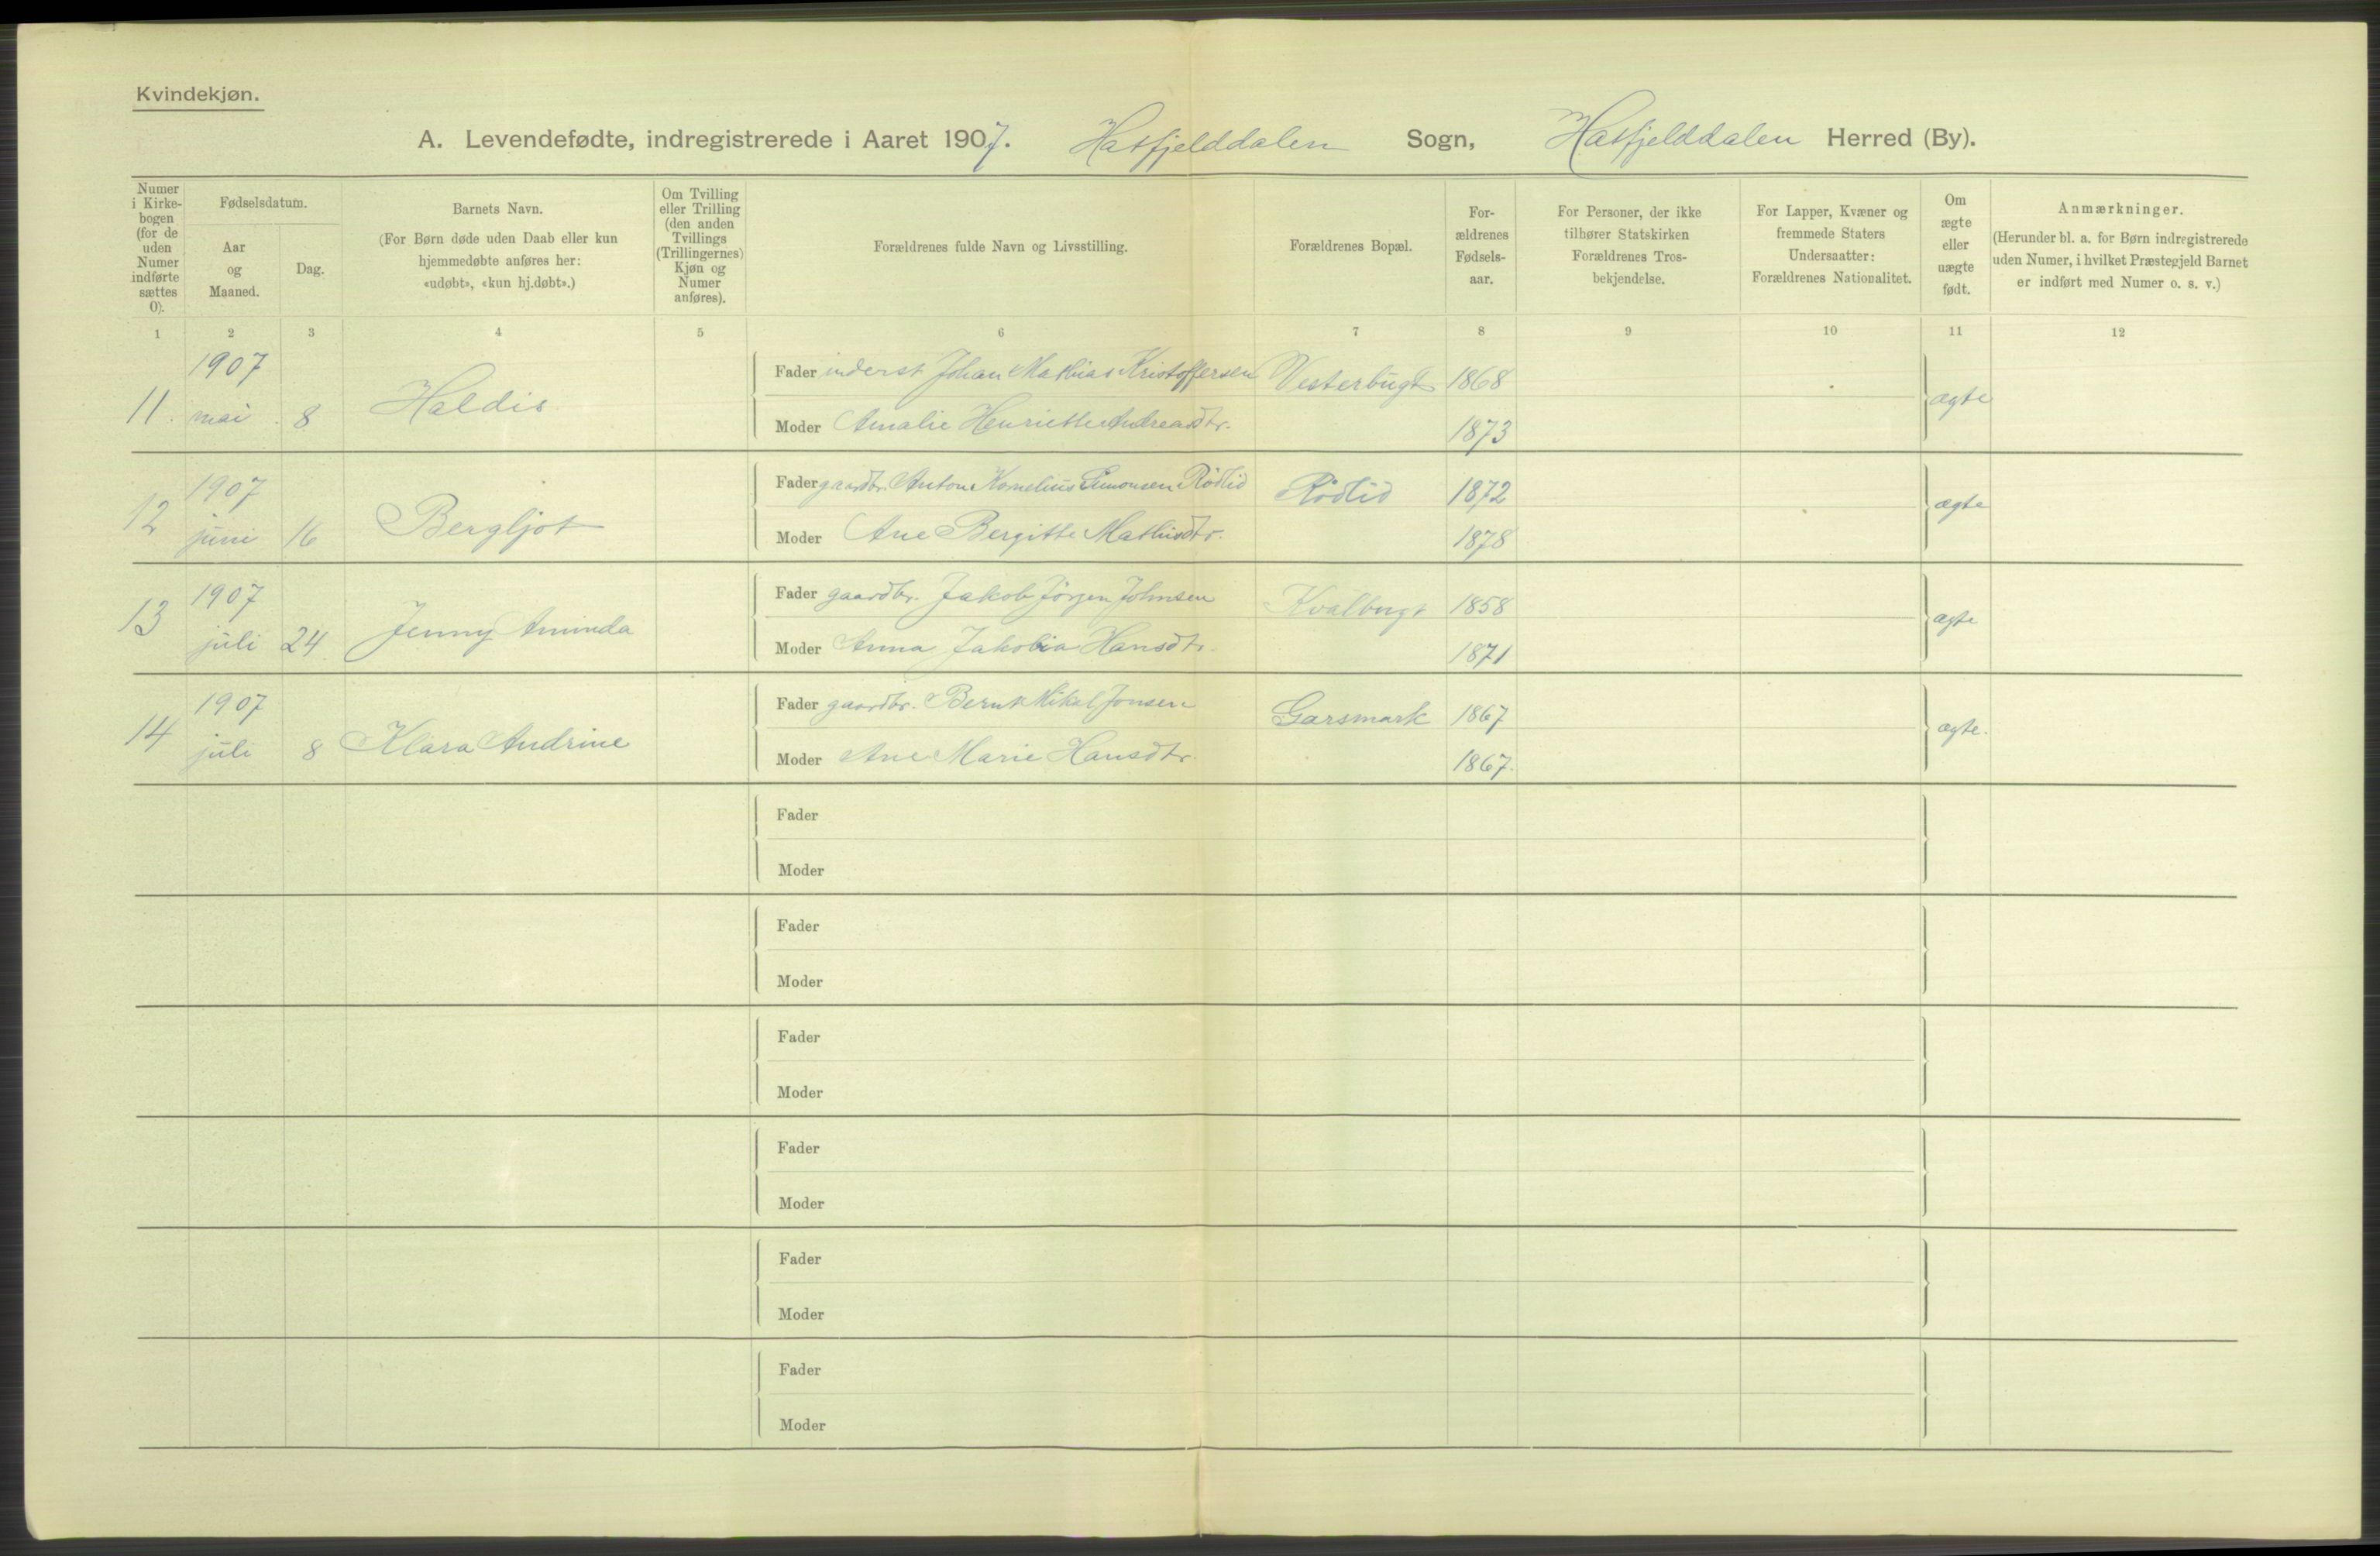 Kvindekjøn.
A. Levendefødte, indregistrerede i Aaret 1907. Hatfjelddalen Sogn, Hatfjelddalen Herred (By).
Numer i Kirke-bogen (for de uden Numer indførte sættes 0).
Fødselsdatum.
Aar og Maaned.
Dag.
Barnets Navn.
(For Børn døde uden Daab eller kun hjemmedøbte anføres her: «udøbt», «kun hj.døbt».)
Om Tvilling eller Trilling (den anden Tvillings (Trillingernes) Kjøn og Numer anføres).
Forældrenes fulde Navn og Livsstilling.
Forældrenes Bopæl.
For-ældrenes Fødsels-aar.
For Personer, der ikke tilhører Statskirken Forældrenes Tros-bekjendelse.
For Lapper, Kvæner og fremmede Staters Undersaatter: Forældrenes Nationalitet.
Om ægte eller uægte født.
Anmærkninger.
(Herunder bl. a. for Børn indregistrerede uden Numer, i hvilket Præstegjeld Barnet er indført med Numer o. s. v.)
1 2 3 4 5 6 7 8 9 10 11 12
1907
Fader inderst Johan Mathias Kristoffersen Vesterbugt 1868
11. mai 8 Haldis ægte
Moder Amalie Henriette Andreasdtr. 1873
1907
Fader gaardbr. Anton Kornelius Simonsen Rödlid Rödlid 1872
12 juni 16 Bergljot ægte
Moder Ane Bergitte Mathisdtr. 1878
1907
Fader gaardbr. Jakob Jörgen Johnsen Kvalbugt 1858
13 juli 24 Jenny Aminda ægte
Moder Anna Jakobia Hansdtr. 1871
1907
Fader gaardbr. Bernt Mikal Jonsen Garsmark 1867
14 juli 8 Klara Andrine ægte.
Moder Ane Marie Hansdtr. 1867.
Fader
Moder
Fader
Moder
Fader
Moder
Fader
Moder
Fader
Moder
Fader
Moder